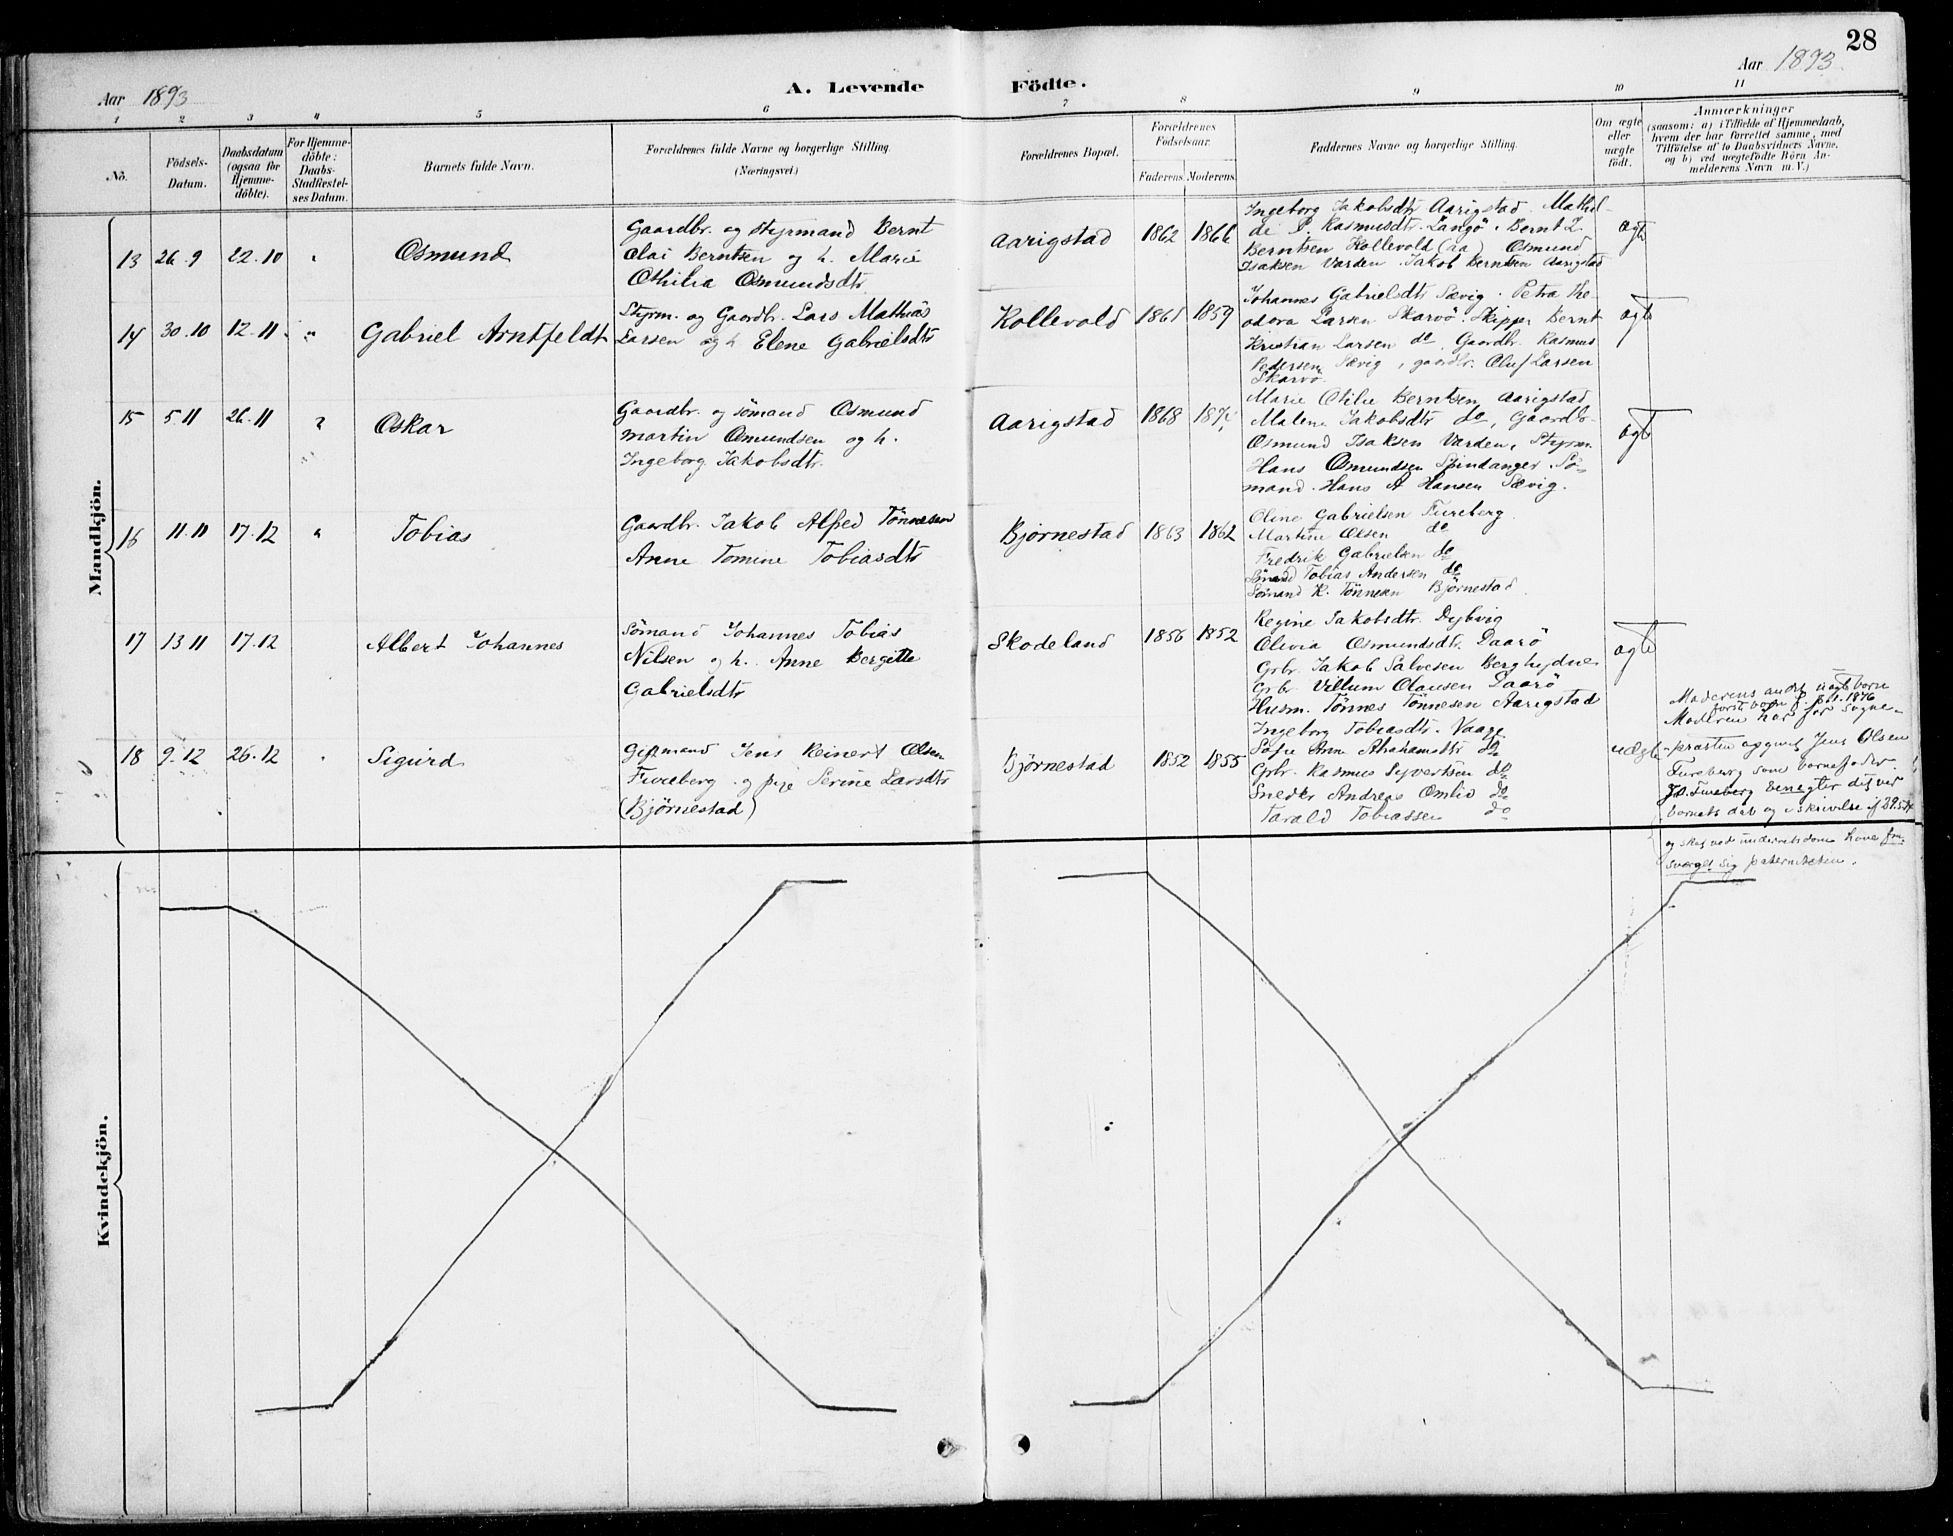 28
Aar 1893
A. Levende Födte.
Aar 1893
1 2 3 4 5 6 7 8 9 10 11
No.
Födsels-
Datum.
Daabsdatum
(ogsaa for
Hjemme-
döbte).
For Hjemme-
döbte:
Daabs-
Stadfæstel-
ses Datum.
Barnets fulde Navn.
Forældrenes fulde Navne og borgerlige Stilling.
(Næringsvei.)
Forældrenes Bopæl.
Forældrenes
Födselsaar.
Faderens. Moderens.
Faddernes Navne og borgerlige Stilling.
Om ægte
eller
uægte
födt.
Anmærkninger
(saasom: a) i Tilfælde af Hjemmedaab,
hvem der har forrettet samme, med
Tilföielse af to Daabsvidners Navne,
og b) ved uægtefödte Börn An-
melderens Navn m.V.)
Mandkjön.
13 26.9 22.10 " Osmund
Gaardbr. og styrmand Bernt
Olai Berntsen og h. Marie
Othilia Osmundsdtr.
Aarigstad 1862 1866
Ingeborg Jakobsdtr Aarigstad. Mathil-
de P. Rasmusdtr. Langö. Bernt L.
Berntsen Kollevold (aa) Osmund
Isaksen Varden. Jakob Berntsen Aarigstad
ægte
14 30.10 12.11 " Gabriel Arntfeldt
Styrm. og Gaardbr. Lars Mathias
Larsen og h. Elene Gabrielsdtr
Kollevold 1861 1859
Johannes Gabrielsdtr Sævig. Petra The-
odora Larsen Skarvö. Skipper Bernt
Kristian Larsen do, Gaardbr. Rasmus
Pedersen Sævig, gaardbr. Oluf Larsen
Skarvö.
ægte
15 5.11 26.11 " Oskar
Gaardbr. og sömand Osmund
Martin Osmundsen og h.
Ingeborg Jakobsdtr.
Aarigstad 1868
Marie Otilie Berntsen, Aarigstad
Malene Jakobsdtr do, Gaardbr
Osmund Isaksen Varden, Styrm.
Hans Osmundsen Spindanger. Sö-
mand. Hans A Hansen Sævig.
ægte
16 11.11 17.12 " Tobias
Gaardbr. Jakob Alfred Tönnesen
Anne Tomine Tobiasdtr
Bjørnestad 1863 1862
Oline Gabrielsen Fureberg.
Martine Olsen do
Fredrik Gabrielsen do
Sömand Tobias Andersen do
Sömand K. Tönnesen Björnestad
17 13.11 17.12 Albert Johannes
Sömand Johannes Tobias
Nilsen og h. Anne Bergitte
Gabrielsdtr
Skodeland 1856 1852
Regine Jakobsdtr. Dybvig
Olivia Osmundsdtr. Daarö
Grbr. Jakob Salvesen Berghydne
Grbr. Villum Olausen Daarö
Husm. Tönnes Tönnesen Aarigstad
ægte
18 9.12 26.12 " Sigurd
Giftmand Jens Reinert Olsen
Fureberg og pige Serine Larsdtr
(Bjørnestad)
Bjørnestad 1852 1855
Ingeborg Tobiasdtr. Vaage
Sofie Anne Abrahamsdtr do
Grbr. Rasmus Syvertsen do
Snedkr Andreas Omlid do
Tarald Tobiassen do
uægte
Moderens andet uægte barn
første barn f. 1876
Moderen har for Sogne-
præsten opgivet Jens Olsen
Fureberg som barnefader.
J.O. Fureberg benegter det ved
barnets dåb og i skrivelse af
og skal ved underretsdom have fra-
sværget sig paterniteten.
Kvindekjön.